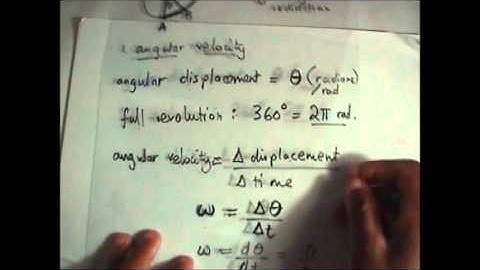 A B
1. angular velocity
angular displacement = θ (radians/rad
full revolution : 360° = 2π rad.
angular velocity = Δ displacement
Δ time
ω = ΔΘ
Δt
ω = dθ
dt